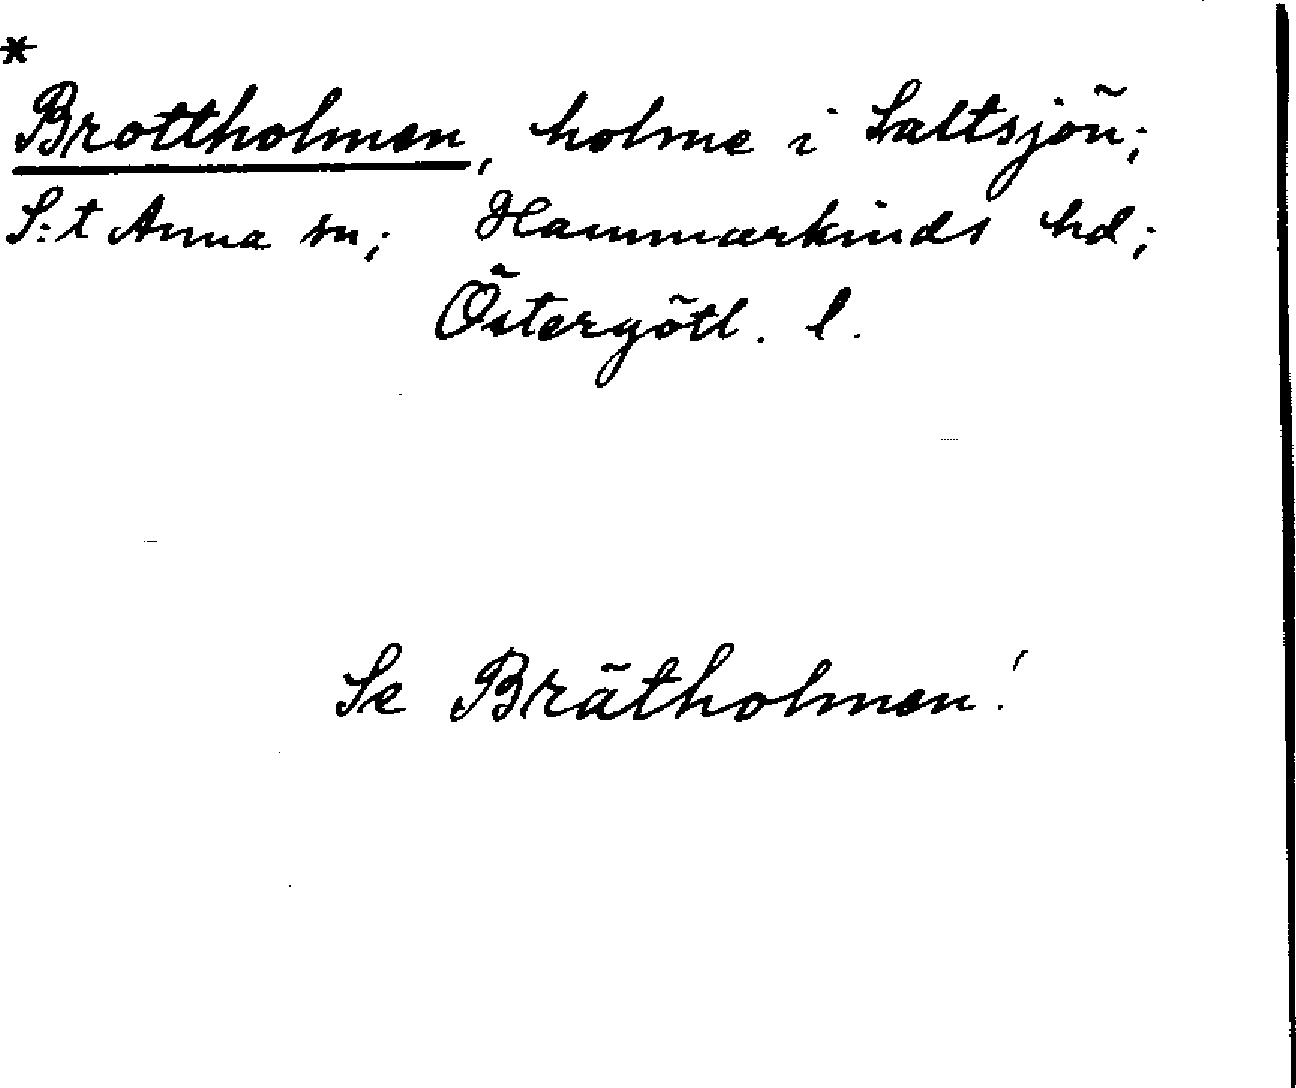 *
Brottholmen, holme i Saltsjön;
S:t Anna sn; Hammarkinds hd;
Östergötl. l.
Se Brätholmen!